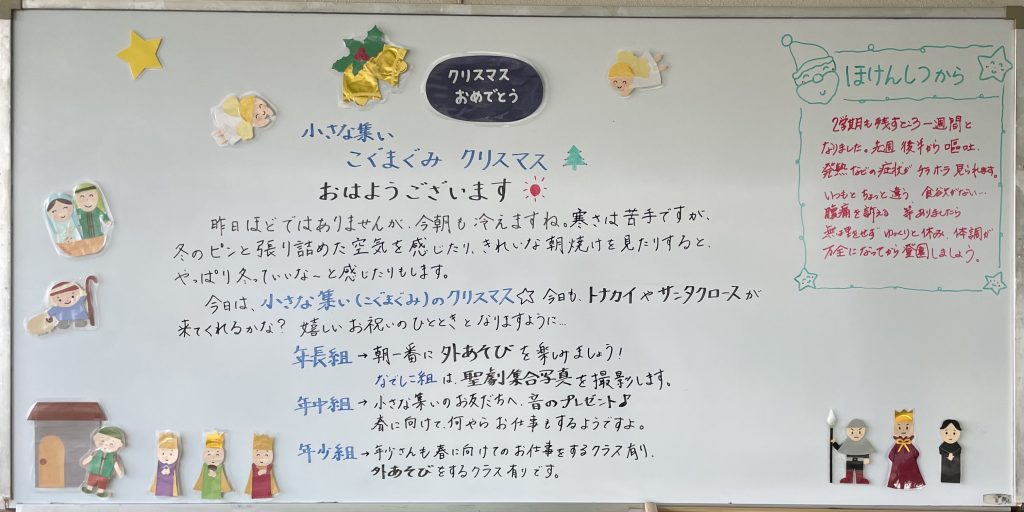 クリスマス
おめでとう
小さな集い
こぐまぐみ クリスマス
おはようございます
昨日ほどではありませんが、今朝も冷えますね。寒さは苦手ですが、
冬のピンと張り詰めた空気を感じたり、きれいな朝焼けを見たりすると、
やっぱり冬っていいな〜と感じたりもします。
今日は、小さな集い(こぐまぐみ)のクリスマス☆今日も、トナカイやサンタクロースが
来てくれるかな? 嬉しいお祝いのひとときとなりますように…
年長組→朝一番に外あそびを楽しみましょう!
なでしこ組は、聖劇集合写真を撮影します。
年中組→小さな集いのお友だちへ、音のプレゼント♪
春に向けて、何やらお仕事もするようですよ。
年少組→年少さんも春に向けてのお仕事をするクラス有り、
外あそびをするクラス有りです。
ほけんしつから
2学期も残すところ一週間と
なりました。先週後半から嘔吐、
発熱などの症状がチラホラ見られます。
いつもとちょっと違う 食欲がない…
腹痛を訴える 等ありましたら
無理をせず ゆっくりと休み、体調が
万全になってから登園しましょう。